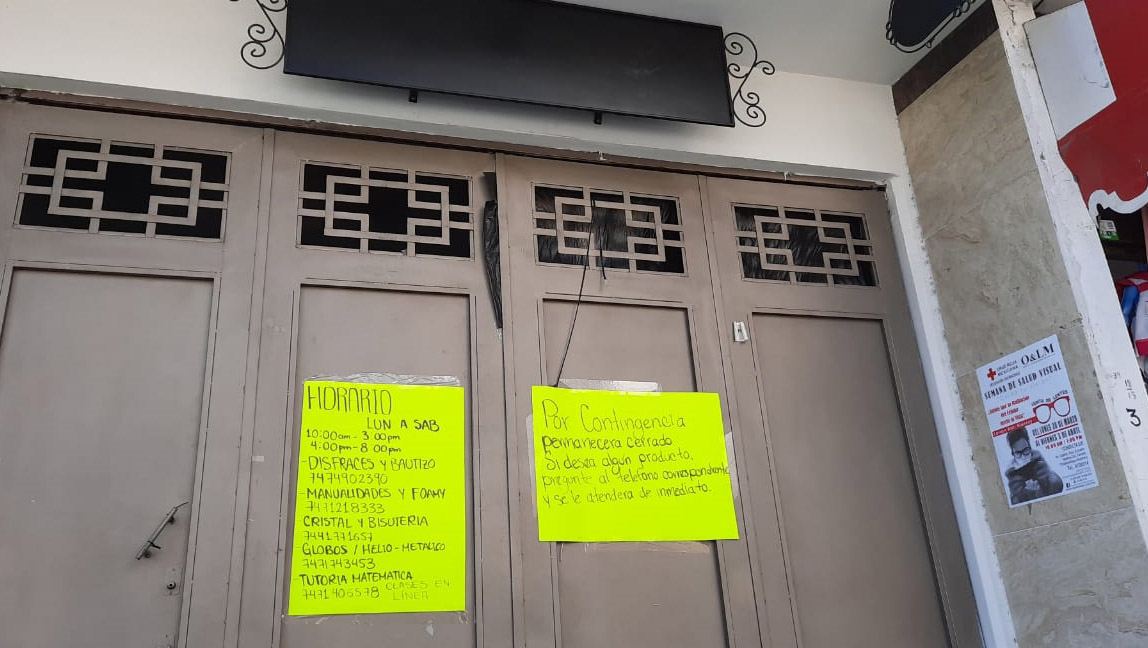 HORARIO
LUN A SAB
10:00am - 3:00pm
4:00pm - 8:00pm
-DISFRACES Y BAUTIZO
7474902390
-MANUALIDADES Y FOAMY
7471218333
CRISTAL Y BISUTERIA
7441771657
GLOBOS / HELIO - METALICO
7471743453
-TUTORIA MATEMATICA
7471406578 CLASES EN
LÍNEA
Por Contingencia
permanecera cerrado
Si desea algún producto,
pregunte al teléfono correspondiente
y se le atendera de inmediato.
CRUZ ROJA
MEXICANA
O&LM
SEMANA DE SALUD VISUAL
VENTA DE LENTES
DEL LUNES 30 DE MARZO
AL VIERNES 3 DE ABRIL
3